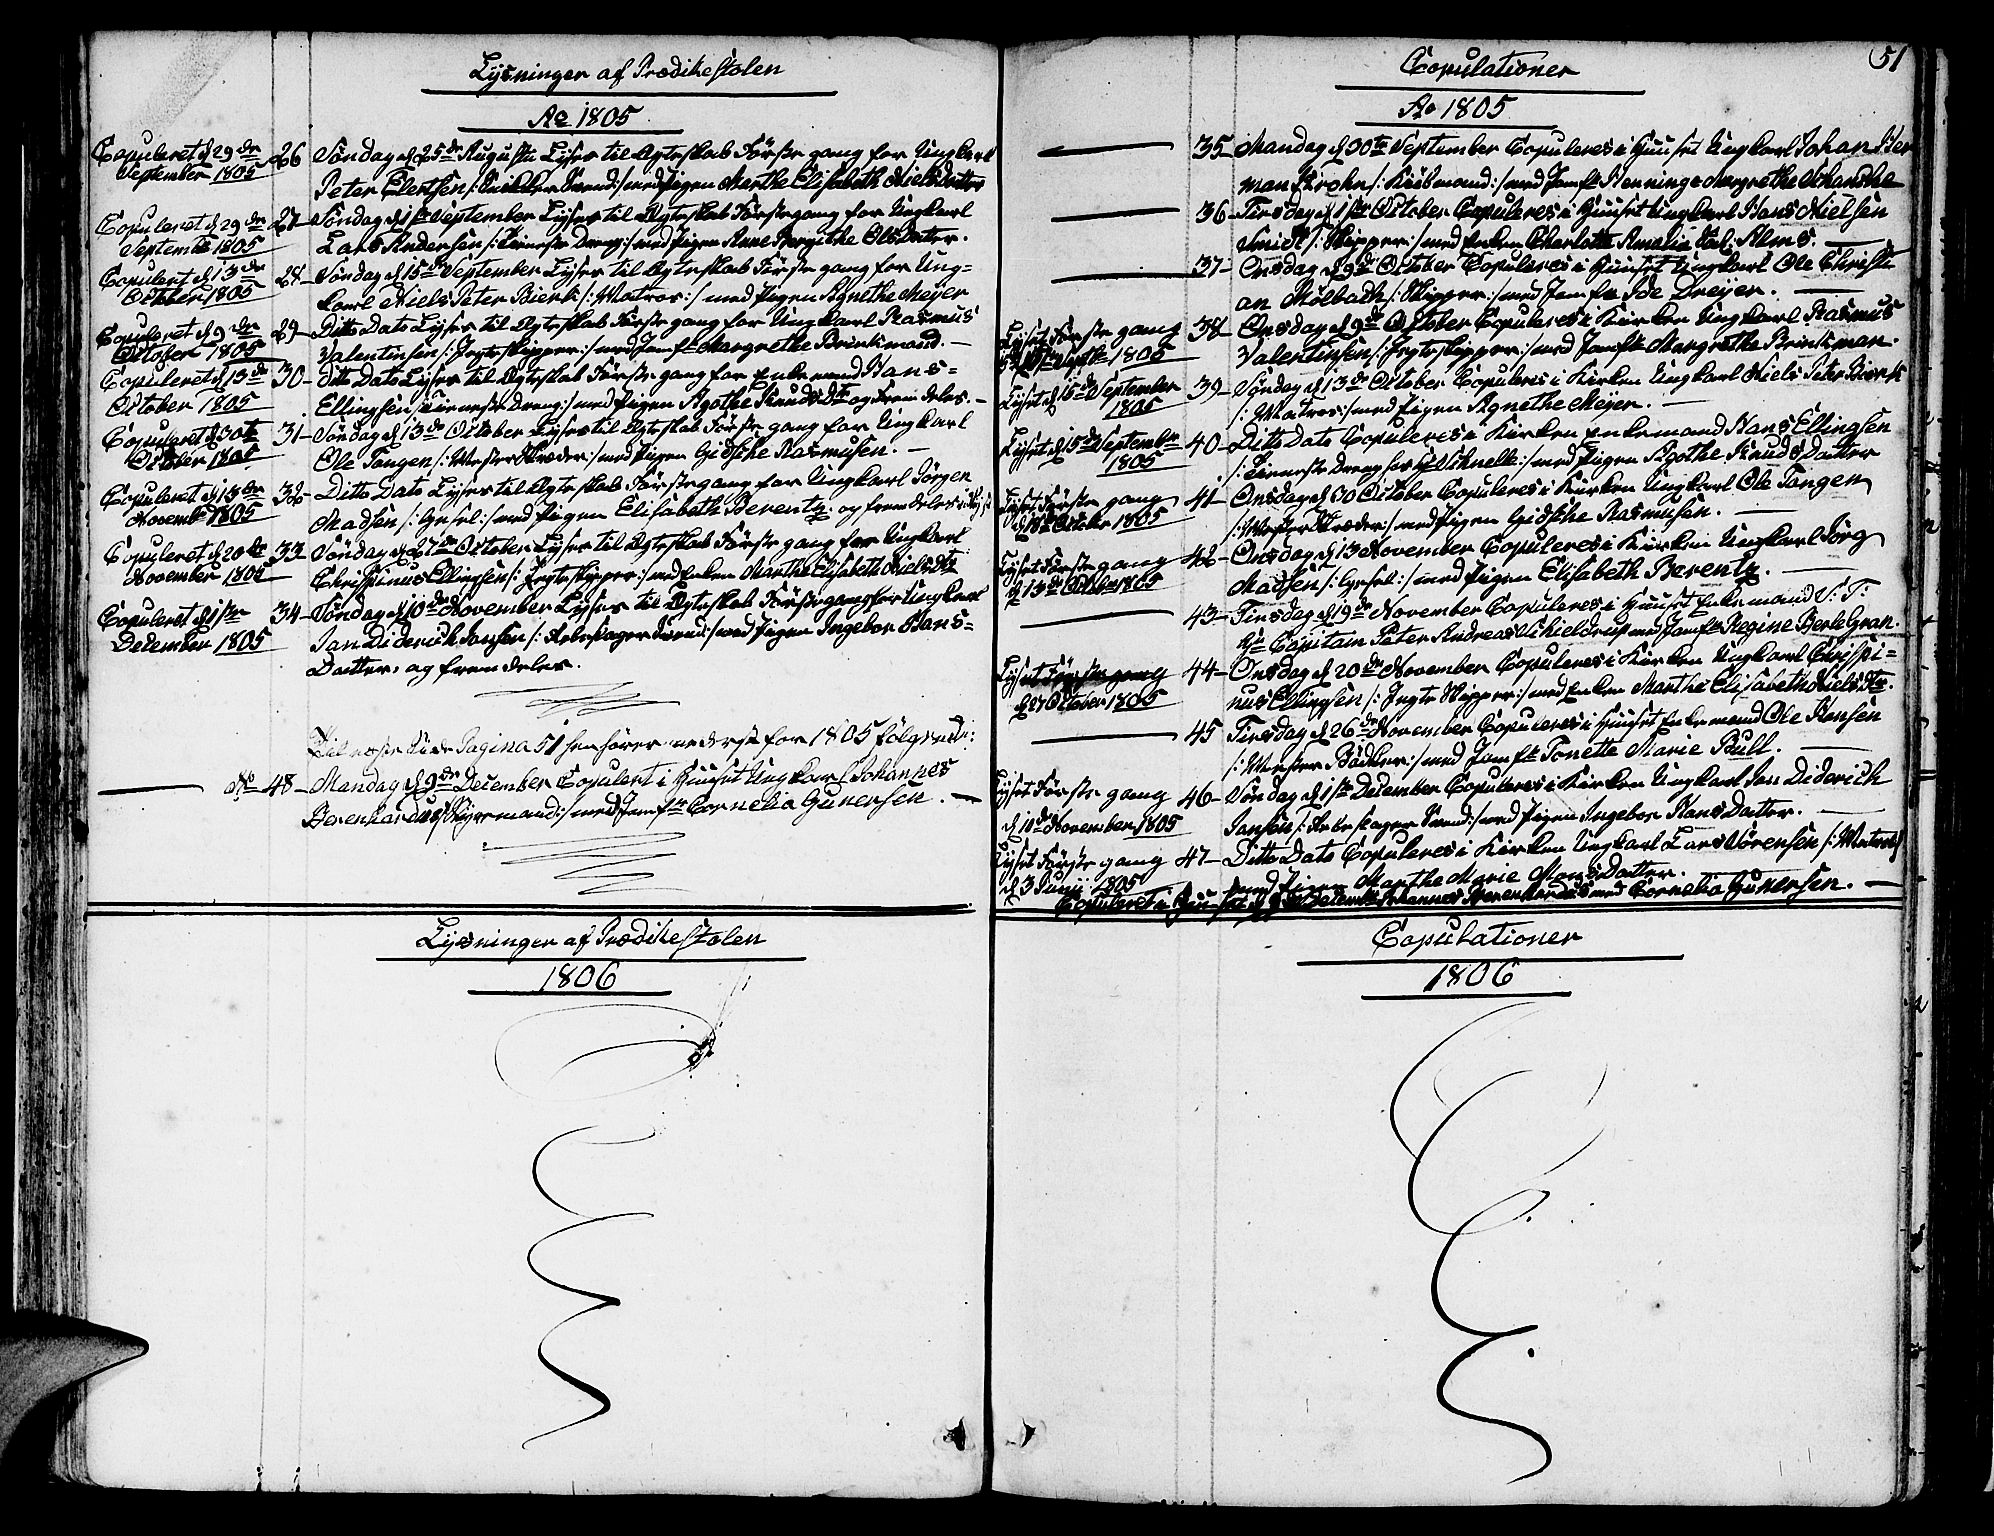 Lysninger af Prædikestolen
Ao 1805
Copuleret d 29de September 1805
26 Søndag d 25de Augusti Lyses til Ægteskab Første gang for Ungkarl
Peter Elertsen /: Snikker Svend :/ med Pigen Marthe Elisabeth Niels Datter
Copuleret d 29de September 1805
27 Søndag d 1ste September Lyses til Ægteskab Første gang for Ungkarl
Lars Andersen /: Tieneste Dreng :/ med Pigen Anne Bergithe Ols Datter.
Copulert d 13de October 1805
28 Søndag d 15de September Lyses til Ægteskab Første gang for Ung=
karl Niels Peter Bierk /: Matros :/ med Pigen Agnethe Meyer
Copuleret d 9de October 1805
29 Ditto Dato Lyses til Ægteskab Første gang for Ungkarl Rasmus
Valentinsen /: Jegteskipper :/ med Jomfr Margrethe Brinkmand.
Copuleret d 13de October 1805
30 Ditto Dato Lyses til Ægteskab Første gang for Enkemand Hans=
Ellingsen /: Tieneste Dreng :/ med Pigen Agothe Knuds Dtr og Fremdeles.
Copuleret d 30te October 1805
31 Søndag d 13de October Lyses til Ægteskab Første gang for Ungkarl
Ole Tangen /: Mester Skræder :/ med Pigen Gidsche Rasmusen.
Copuleret d 13de Novemb 1805
32 Ditto Dato Lyses til Ægteskab Første gang for Ungkarl Jørgen
Madsen /: Gesel :/ med Pigen Elisabeth Berentz. og fremdeles
Copuleret d 20de November 1805
33 Søndag d 27de October Lyses til Ægteskab Første gang for Ungkarl
Chrispinus Ellingsen /: Jegteskipper :/ med Enken Marthe Elisabeth Niels Dtr
Copuleret d 1ste December 1805
34 Søndag d 10de November Lyses til Ægteskab Første gang for Ungkarl
Jan Diderich Jansen /: Rebeslager Svend :/ med Pigen Ingebor Hans=
Datter, og fremdeles.
Til næste Side Pagina 51 henhører nederst for 1805 følgende:
No 48 Mandag d 9de December Copulert i Huuset Ungkarl Johannes
Berenhardus /: Styremand :/ med Jomfr Cornelia Gunersen.
Lysninger af Prædikestolen
1806
51
Copulationer
Ao 1805
35 Mandag d 30te September Copuleres i Huuset Ungkarl Johan Her
man Krohn /: Kiøbmand :/ med Jomfr Henninge Margrethe Schanche
36 Tirsdag d 1ste October Copuleres i Huuset Ungkarl Hans Nielsen
Smidt /: Skipper :/ med Enken Charlotte Amalia Sal: Alms.
37 Onsdag d 9de October Copuleres i Huuset Ungkarl Ole Christi
an Mølbach /: Skipper :/ med Jomfr Ide Dreyer.
Lyset Første gang d 15de Septbr 1805
38 Onsdag d 9de October Copuleres i Kirken Ungkarl Rasmus
Valentinsen /: Jegteskipper :/ med Jomfr Margrethe Brinkman.
Lyset d 15de September 1805
39 Søndag d 13de October Copuleres i Kirken Ungkarl Niels Peter Bierk
/: Matros :/ med Pigen Agnethe Meyer.
Lyset d 15de September 1805
40 Ditto Dato Copuleres i Kirken Enkemand Hans Ellingsen
/: Tieneste Dreng hos Schnell :/ med Pigen Agothe Knuds Datter
Lyset Første gang d 13de October 1805
41 Onsdag d 30 October Copuleres i Kirken Ungkarl Ole Tangen
/: Mester Skræder :/ med Pigen Gidsche Rasmusen.
Lyset Første gang d 13de October 1805
42 Onsdag d 13 November Copuleres i Kirken Ungkarl Jørg
Madsen /: Gesel :/ med Pigen Elisabeth Berentz.
43 Tirsdag d 19de November Copuleres i Huuset Enkemand S: T:
Hr Capitain Peter Andreas Schieldrup med Jomfr Regine Berle Gran.
Lyset Første gang d 27 October 1805
44 Onsdag d 20de November Copuleres i Kirken Ungkarl Chrispi=
nus Ellingsen /: Jegte Skipper :/ med Enken Marthe Elisabeth Niels Dtr.
45 Tirsdag d 26de November Copuleres i Huuset Enkemand Ole Hansen
/: Mester Bødker :/ med Jomfr Tonette Marie Bull.
Lyset Første gang d 10de November 1805
46 Søndag d 1ste December Copuleres i Kirken Ungkarl Jan Diderich
Jansen /: Rebeslager Svend :/ med Pigen Ingebor Hans Datter.
Lyset Første gang d 3 Junii 1805
47 Ditto Dato Copuleres i Kirken Ungkarl Lars Sørensen /: Matros
med Pigen Marthe Marie Mons Datter.
Copuleret i Huuset d 9de Decemb Johannes Berenhardus med Cornelia Gunersen.
Copulationer
1806